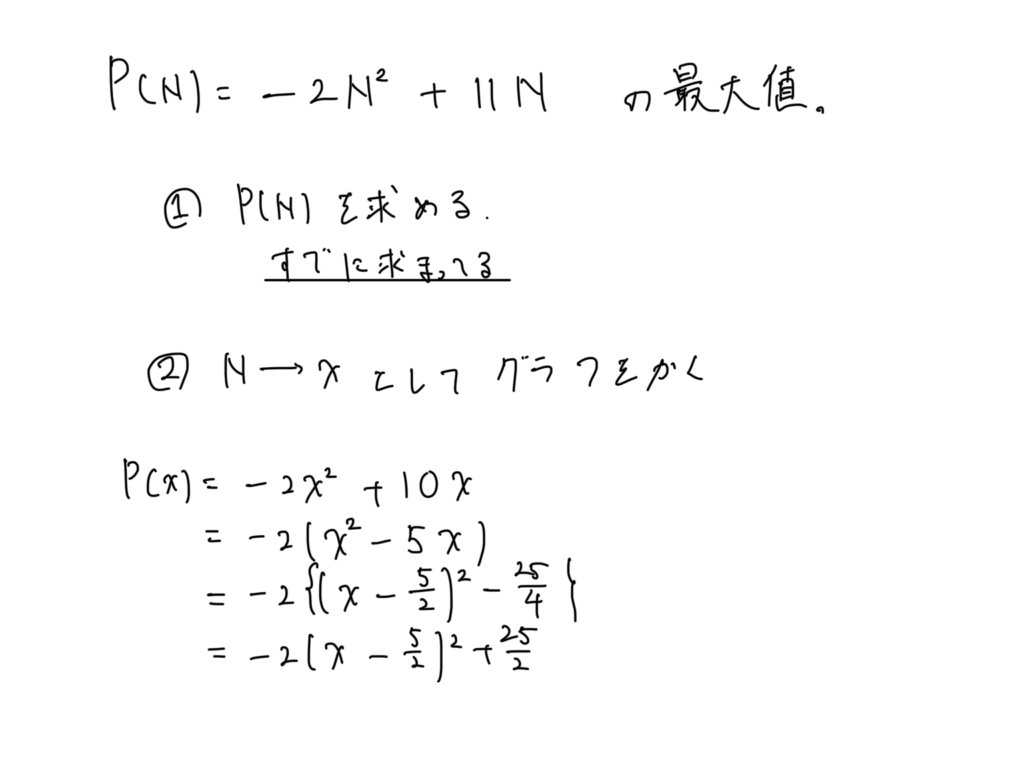 P(N) = -2N² + 11N の最大値。
① P(N)を求める.
すでに求まってる
② N → x として グラフをかく
P(x) = -2x² + 10x
= -2(x² - 5x)
= -2{(x - 5/2)² - 25/4}
= -2(x - 5/2)² + 25/2